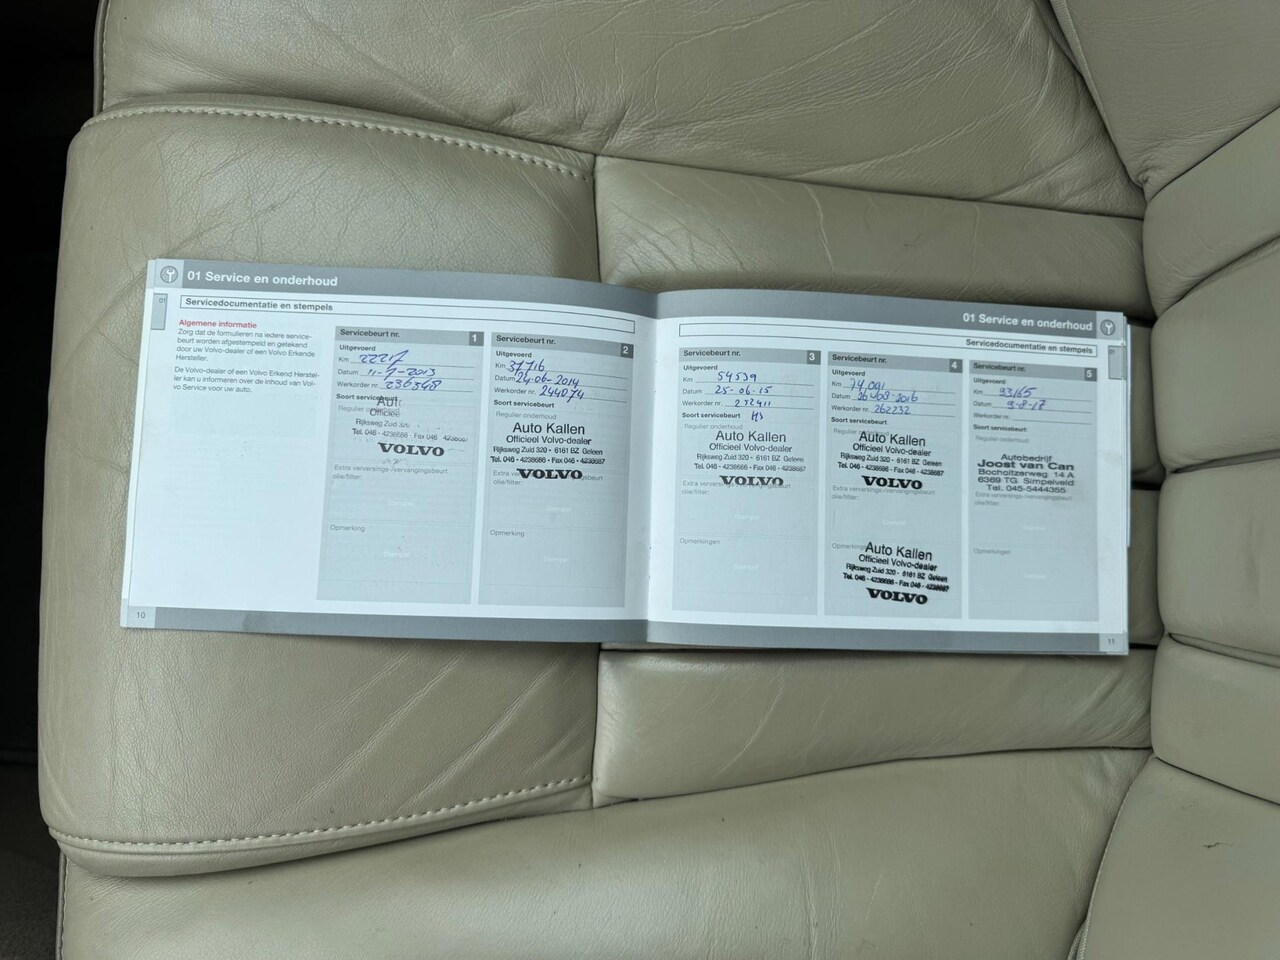 01 Service en onderhoud
01
Servicedocumentatie en stempels
Algemene informatie
Zorg dat de formulieren na iedere service-
beurt worden afgestempeld en getekend
door uw Volvo-dealer of een Volvo Erkende
Hersteller.
De Volvo-dealer of een Volvo Erkend Herstel-
ler kan u informeren over de inhoud van Vol-
vo Service voor uw auto.
Servicebeurt nr. 1
Uitgevoerd
Km
Datum 11-9-2013
Werkorder nr. 236368
Soort servicebeurt
Regulier
Officieel
Rijksweg Zuid 320
Tel. 046 - 4238686 - Fax 046
VOLVO
Extra verversings-/vervangingsbeurt
olie/filter:
Stempel
Opmerking
Stempel
10
Servicebeurt nr. 2
Uitgevoerd
Km 37716
Datum 24-06-2014
Werkorder nr. 244074
Soort servicebeurt
Regulier onderhoud
Auto Kallen
Officieel Volvo-dealer
Rijksweg Zuid 320 - 6161 BZ Geleen
Tel. 046 - 4238686 - Fax 046 - 4238687
VOLVO
Extra verversings-/vervangingsbeurt
olie/filter:
Stempel
Opmerking
Stempel
01 Service en onderhoud
Servicedocumentatie en stempels
01
Servicebeurt nr. 3
Uitgevoerd
Km 54539
Datum 25-06-15
Werkorder nr. 252411
Soort servicebeurt
Regulier onderhoud
Auto Kallen
Officieel Volvo-dealer
Rijksweg Zuid 320 - 6161 BZ Geleen
Tel. 046 - 4238686 - Fax 046 - 4238687
VOLVO
Extra verversings-/vervangingsbeurt
olie/filter:
Stempel
Opmerkingen
Stempel
Servicebeurt nr. 4
Uitgevoerd
Km 74091
Datum
Werkorder nr. 262232
Soort servicebeurt
Regulier
Auto Kallen
Officieel Volvo-dealer
Rijksweg Zuid 320 - 6161 BZ Geleen
Tel. 046 - 4238686 - Fax 046 - 4238687
VOLVO
Extra verversings-/vervangingsbeurt
olie/filter:
Auto Kallen
Officieel Volvo-dealer
Rijksweg Zuid 320 - 6161 BZ Geleen
Tel. 046 - 4238686 - Fax 046 - 4238687
VOLVO
Servicebeurt nr. 5
Uitgevoerd
Km 93165
Datum
Werkorder nr.
Soort servicebeurt
Regulier onderhoud
Autobedrijf
Joost van Can
Bocholtzerweg 14 A
6369 TG Simpelveld
Tel. 045-5444355
olie/filter:
Stempel
Opmerkingen
Stempel
11